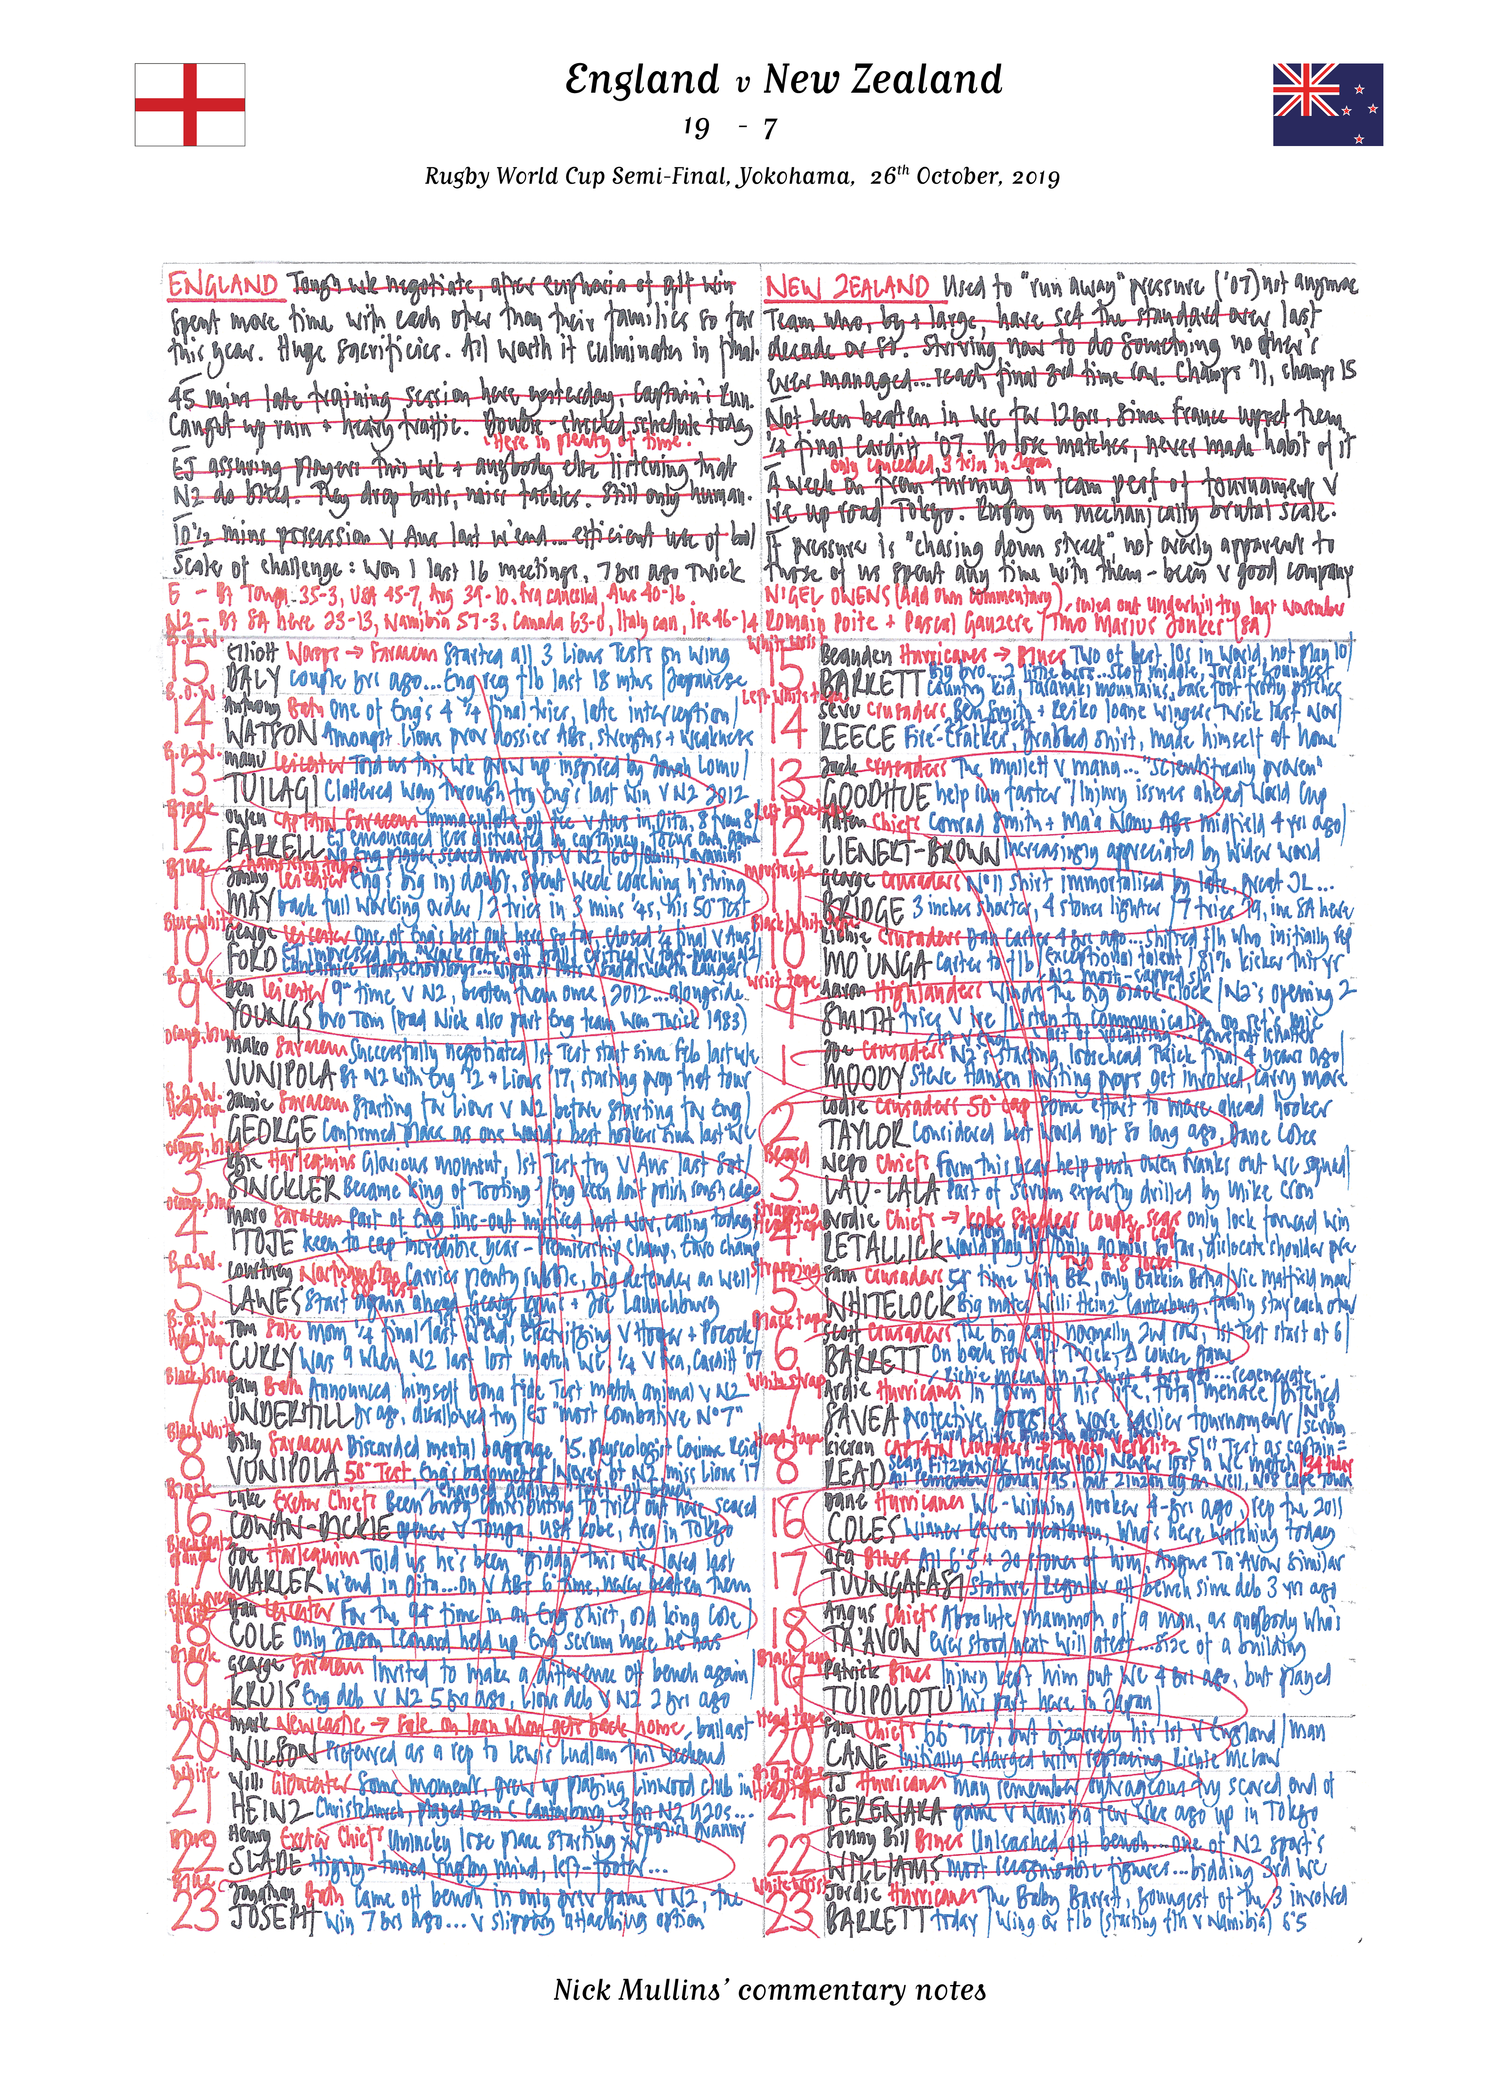 England v New Zealand
19 - 7
Rugby World Cup Semi-Final, Yokohama, 26th October, 2019
ENGLAND Tough wk negotiate, after euphoria of q/f win
Spent more time with each other than their families so far
this year. Huge sacrifices. All worth it culminates in final.
45 mins late training session here yesterday Captain's Run.
Caught up rain + heavy traffic. Double-checked schedule today
Here in plenty of time.
EJ assuring players this wk + anybody else listening that
NZ do bleed. They drop balls, miss tackles. Still only human.
10½ mins possession v Aus last w'end... efficient use of ball
Scale of challenge: Won 1 last 16 meetings, 7 yrs ago Twick
E - Bt Tonga 35-3, USA 45-7, Arg 39-10, Fra cancelled, Aus 40-16.
NZ - Bt SA here 23-13, Namibia 57-3, Canada 63-0, Italy can, Ire 46-14
NEW ZEALAND Used to "run away" pressure ('07) not anymore
Team who, by + large, have set the standard over last
decade or so. Striving now to do something no other's
ever managed... reach final 3rd time row. Champs '11, champs 15
Not been beaten in WC for 12 yrs, since France upset them
¼ final Cardiff '07. Do lose matches, never made habit of it
only conceded 3 tries in Japan
A week on from turning in team perf of tournament v
Ire up road Tokyo. Rugby on mechanically brutal scale.
If pressure is "chasing down street", not overly apparent to
those of us spent any time with them - been v good company
NIGEL OWENS (Add own commentary), ruled out Underhill try last November
Romain Poite + Pascal Gauzere / Tmo Marius Jonker (SA)
B.O.W.
15 Elliott Wasps → Saracens Started all 3 Lions Tests on wing
DALY couple yrs ago... Eng reg f/b last 18 mths / Japanese
B.O.W
14 Anthony Bath One of Eng's 4 ¼ final tries, late interception /
WATSON Amongst Lions prov dossier ABs, strengths + weakness
B.O.W.
13 Manu Leicester Told us this wk grew up inspired by Jonah Lomu /
TUILAGI Clattered way through try Eng's last win v NZ 2012
Black
12 Owen CAPTAIN Saracens Immaculate off tee v Aus in Oita, 8 from 8 /
FARRELL EJ encouraged less distracted by captaincy, focus own game
Blue
11 Jonny Leicester Eng's big inj doubt, spent week coaching h'string
MAY back full working order / 2 tries in 3 mins ¼s, his 50th Test
Blue, White
10 George Leicester One of Eng's best out here so far, closed ¼ final v Aus /
FORD EJ impressed
B.O.W.
9 Ben Leicester 9th time v NZ, beaten them once, 2012... alongside
YOUNGS bro Tom (Dad Nick also part Eng team won Twick 1983)
Orange, blue
1 Mako Saracens Successfully negotiated 1st Test start since Feb last wk
VUNIPOLA Bt NZ with Eng '12 + Lions '17, starting prop that tour
B.O.W. Head tape
2 Jamie Saracens Starting for Lions v NZ before starting for Eng /
GEORGE Confirmed place as one world's best hookers since last WC
Orange, blue
3 Kyle Harlequins Glorious moment, 1st Test try v Aus last Sat /
SINCKLER Became 'king of Tooting' / Eng keen dont polish rough edge
Orange, blue
4 Maro Saracens Part of Eng line-out misfired last Nov, calling today /
ITOJE keen to cap incredible year - Premiership champ, Euro champ
B.O.W.
5 Courtney Northampton Carries plenty rubble, big defender as well /
80th Test
LAWES Start again ahead George Kruis + Joe Launchbury
B.O.W. Head tape
6 Tom Sale Mom ¼ final last w'end, electrifying v Hooper + Pocock /
CURRY Was 9 when NZ last lost match WC, ¼ v Fra, Cardiff 07
Black, blue
7 Sam Bath Announced himself bona fide Test match animal v NZ
UNDERHILL yr ago, disallowed try / EJ "most combative No 7"
Black, White
8 Billy Saracens Discarded mental baggage '15, Corinne Reid /
VUNIPOLA 50th Test, Eng's barometer / Never bt NZ, miss Lions '17
Black
16 Luke Exeter Chiefs Been busy contributing to tries out here, scored
COWAN-DICKIE opener v Tonga, USA Kobe, Arg in Tokyo
17 Joe Harlequins Told us he's been "giddy" this wk, loved last
MARLER w'end in Oita... on v ABs 6th time, never beaten them
18 Dan Leicester For the 94th time in an Eng shirt, old king Cole /
COLE only Jason Leonard held up Eng scrum more he has
Black
19 George Saracens Invited to make a difference off bench again /
KRUIS Eng deb v NZ 5 yrs ago, Lions deb v NZ 2 yrs ago
White, red
20 Mark Newcastle → Sale on loan when gets back home, ballast
WILSON Preferred as a rep to Lewis Ludlam this weekend
White
21 Willi Gloucester Some moment, grew up playing Linwood club in
HEINZ Christchurch, played Dan C Canterbury, 3 yrs NZ U20s...
English nanny
Blue
22 Henry Exeter Chiefs Unlucky lose place starting xv
SLADE Highly-tuned rugby mind, left-footer...
Blue
23 Jonathan Bath Came off bench in only prev game v NZ, the
JOSEPH win 7 yrs ago... v slippery attacking option
White wrist
15 Beauden Hurricanes → Blues Two of best 10s in world, not plan 10 /
BARRETT Big bro... 2 little bros... Scott middle, Jordie youngest
Country kid, Taranaki mountains, bare foot frosty pitches
Left White tape
14 Sevu Crusaders Ben Smith + Reiko Ioane wingers Twick last Nov /
REECE Fire-cracker, grabbed shirt, made himself at home
13 Jack Crusaders The mullet v Manu... "scientifically proven"
GOODHUE help run faster" / Injury issues ahead World Cup
Left knee tape
12 Anton Chiefs Conrad Smith + Ma'a Nonu ABs midfield 4 yrs ago /
LIENERT-BROWN Increasingly appreciated by wider world
Moustache
11 George Crusaders No 11 shirt immortalised by late, great JL...
BRIDGE 3 inches shorter, 4 stones lighter / 7 tries '19, inc SA here
Black/White tape
10 Richie Crusaders Dan Carter 4 yrs ago... shifted f/h who initially rep
MO'UNGA Carter to f/b / Exceptional talent / 81% kicker this yr
Wrist tape
9 Aaron Highlanders Winds the big black clock / NZ's opening 2
NZ most-capped s/h
SMITH tries v Ire / Listen to communication on ref's mic
1 Joe Crusaders NZ's starting loosehead Twick final 4 years ago /
MOODY Steve Hansen inviting props get involved, carry more
2 Codie Crusaders 50th cap Some effort to move ahead hooker
TAYLOR considered best world not so long ago, Dane Coles
Beard
3 Nepo Chiefs Form this year help push Owen Franks out WC squad /
LAULALA Part of scrum expertly drilled by Mike Cron
Strapping Head tape
4 Brodie Chiefs → Kobe Steelers couple seas only lock forward win
RETALLICK World play yr / Only 90 mins so far, dislocate shoulder pre
Strapping
5 Sam Crusaders 55th time with BR, only Bakkies Botha/Vic Matfield more /
WHITELOCK Big mates Willi Heinz Canterbury, family stay each other
Black tape
6 Scott Crusaders The big call, normally 2nd row, 1st Test start at 6 /
BARRETT On back row h/t Twick, Δ course game
White strap
7 Ardie Hurricanes In form of his life, total menace / Ditched
SAVEA protective goggles wore earlier tournament / No 8 scrums
Head tape
8 Kieran CAPTAIN Crusaders → Toyota Verblitz 51st Test as captain =
READ Sean Fitzpatrick (McCaw 110) / Never lost a WC match
16 Dane Hurricanes WC-winning hooker 4-yrs ago, rep the 2011
COLES winner Keven Mealamu, who's here watching today
17 Ofa Blues All 6'5 + 20 stones of him, Angus Ta'avao similar
TUUNGAFASI stature / Regular off bench since deb 3 yrs ago
18 Angus Chiefs Absolute mammoth of a man, as anybody who's
TA'AVOW ever stood next will attest... size of a building
Black tape
19 Patrick Blues Injury kept him out WC 4 yrs ago, but played
TUIPOLOTU his part here in Japan /
Head tape
20 Sam Chiefs 66th Test, but bizarrely his 1st v England / man
CANE initially charged with replacing Richie McCaw
21 TJ Hurricanes May remember outrageous try scored end of
PERENARA game v Namibia few wks ago up in Tokyo
22 Sonny Bill Blues Unleashed off bench... one of NZ sport's
WILLIAMS most recognisable figures... bidding 3rd WC
White wrist
23 Jordie Hurricanes The Baby Barrett, youngest of the 3 involved
BARRETT today / Wing or f/b (starting f/h v Namibia) 6'5
Nick Mullins' commentary notes